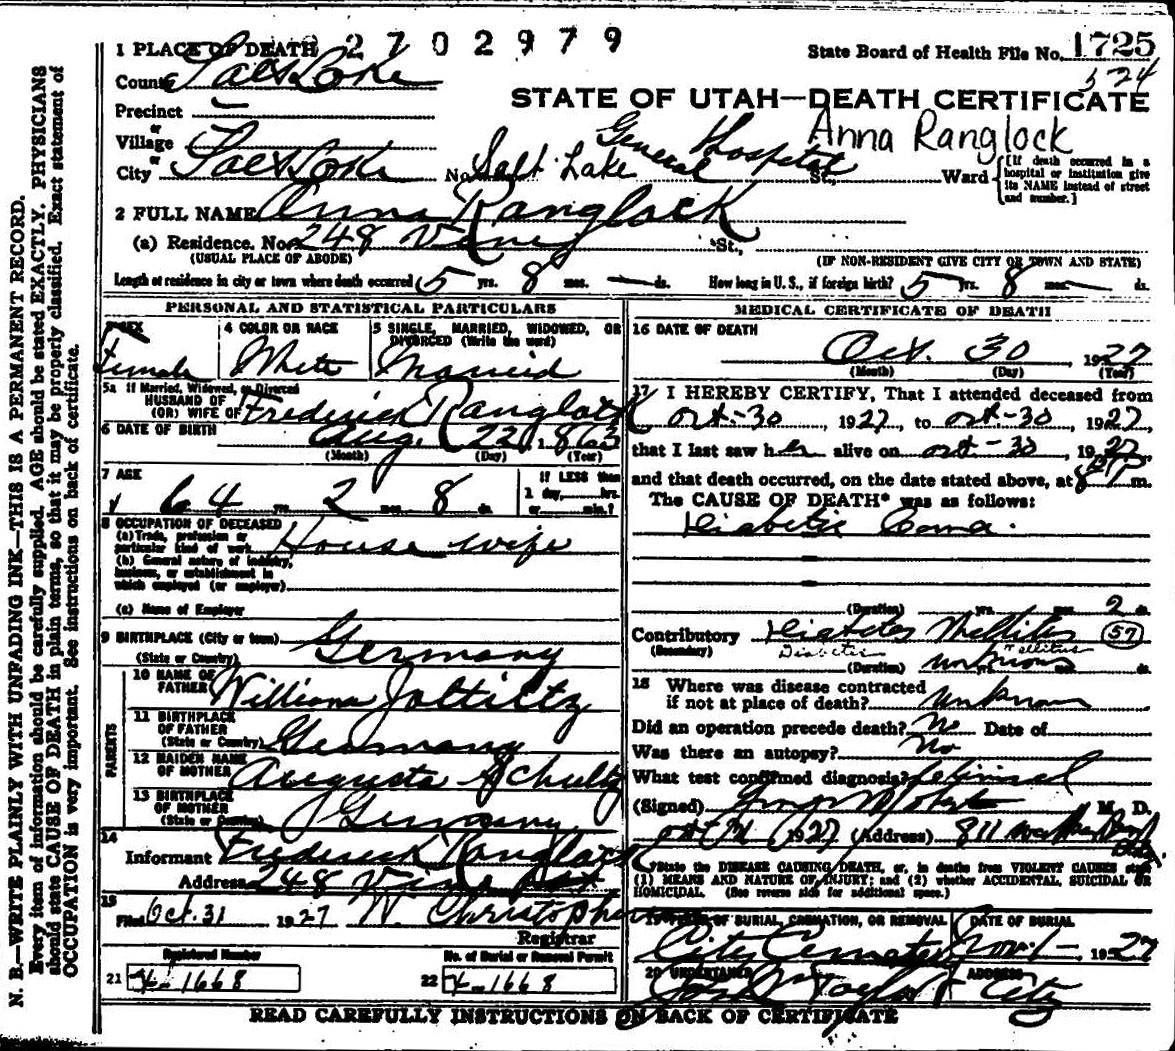 1 PLACE OF DEATH 2702979 State Board of Health File No. 1725
County Salt Lake 524
STATE OF UTAH—DEATH CERTIFICATE
Precinct —
or
Village
Anna Ranglock
or
City Salt Lake No. Salt Lake General Hospital St., Ward [If death occurred in a hospital or institution give its NAME instead of street and number.]
2 FULL NAME Anna Ranglock
(a) Residence. No. 248 Vine St.,
(USUAL PLACE OF ABODE) (IF NON-RESIDENT GIVE CITY OR TOWN AND STATE)
Length of residence in city or town where death occurred 5 yrs. 8 mos. — ds. How long in U. S., if foreign birth? 5 yrs. 8 mos. — ds.
PERSONAL AND STATISTICAL PARTICULARS
3 SEX
Female
4 COLOR OR RACE
White
5 SINGLE, MARRIED, WIDOWED, OR
DIVORCED (Write the word)
Married
5a If Married, Widowed, or Divorced
HUSBAND OF
(OR) WIFE OF Frederick Ranglock
6 DATE OF BIRTH Aug. 22 1863
(Month) (Day) (Year)
7 AGE 64 yrs. 2 mos. 8 ds.
If LESS than
1 day, hrs.
or min.?
8 OCCUPATION OF DECEASED
(a) Trade, profession or
particular kind of work House wife
(b) General nature of industry,
business, or establishment in
which employed (or employer)
(c) Name of Employer
9 BIRTHPLACE (City or town)
(State or Country) Germany
PARENTS
10 NAME OF
FATHER William
11 BIRTHPLACE
OF FATHER
(State or Country) Germany
12 MAIDEN NAME
OF MOTHER Augusta Schultz
13 BIRTHPLACE
OF MOTHER
(State or Country) Germany
14
Informant Frederick Ranglock
Address 248 Vine
15
Filed Oct. 31 1927 W. Christopherson
Registrar
Registered Number
21 X-1668
No. of Burial or Removal Permit
22 X-1668
MEDICAL CERTIFICATE OF DEATH
16 DATE OF DEATH
Oct. 30 1927
(Month) (Day) (Year)
17 I HEREBY CERTIFY, That I attended deceased from
Oct-30, 1927, to Oct-30, 1927,
that I last saw her alive on Oct-30, 1927,
and that death occurred, on the date stated above, at 8 P m.
The CAUSE OF DEATH* was as follows:
Diabetic Coma.
(Duration) yrs. mos. 2 ds.
Contributory Diabetes Mellitus 57
(Secondary) Diabetes Mellitus
(Duration) unknown ds.
18 Where was disease contracted
if not at place of death? unknown
Did an operation precede death? No Date of
Was there an autopsy? No
What test confirmed diagnosis? Clinical
(Signed) M. D.
Oct 31 1927 (Address) 811
*State the DISEASE CAUSING DEATH, or, in deaths from VIOLENT CAUSES state
(1) MEANS AND NATURE OF INJURY; and (2) whether ACCIDENTAL, SUICIDAL OR
HOMICIDAL. (See reverse side for additional space.)
19 PLACE OF BURIAL, CREMATION, OR REMOVAL DATE OF BURIAL
City Cemetery Nov. 1 — 1927
20 UNDERTAKER ADDRESS
Taylor City
READ CAREFULLY INSTRUCTIONS ON BACK OF CERTIFICATE
N. B.—WRITE PLAINLY WITH UNFADING INK—THIS IS A PERMANENT RECORD.
Every item of information should be carefully supplied. AGE should be stated EXACTLY. PHYSICIANS
should state CAUSE OF DEATH in plain terms, so that it may be properly classified. Exact statement of
OCCUPATION is very important. See instructions on back of certificate.